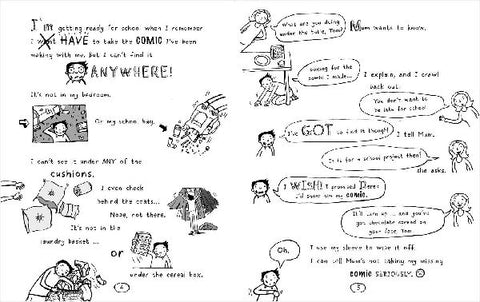 I'm getting ready for school when I remember
I want HAVE to take the COMIC I've been
making with me. But I can't find it
ANYWHERE!
It's not in my bedroom.
Or my school bag.
I can't see it under ANY of the
cushions.
I even check
behind the coats...
Nope, not there.
It's not in the
laundry basket ...
OR
under the cereal box.
4
What are you doing
under the table, Tom?
Mum wants to know.
Looking for the
comic I made...
I explain, and I crawl
back out.
You don't want to
be late for school
I've GOT to find it though!
I tell Mum.
It is for a school project then?
She asks.
I WISH! I promised Derek
I'd show him my COMIC.
It'll turn up ... and you've
got chocolate spread on
your face Tom.
Oh.
I use my sleeve to wipe it off.
I can tell Mum's not taking my missing
COMIC SERIOUSLY.
5